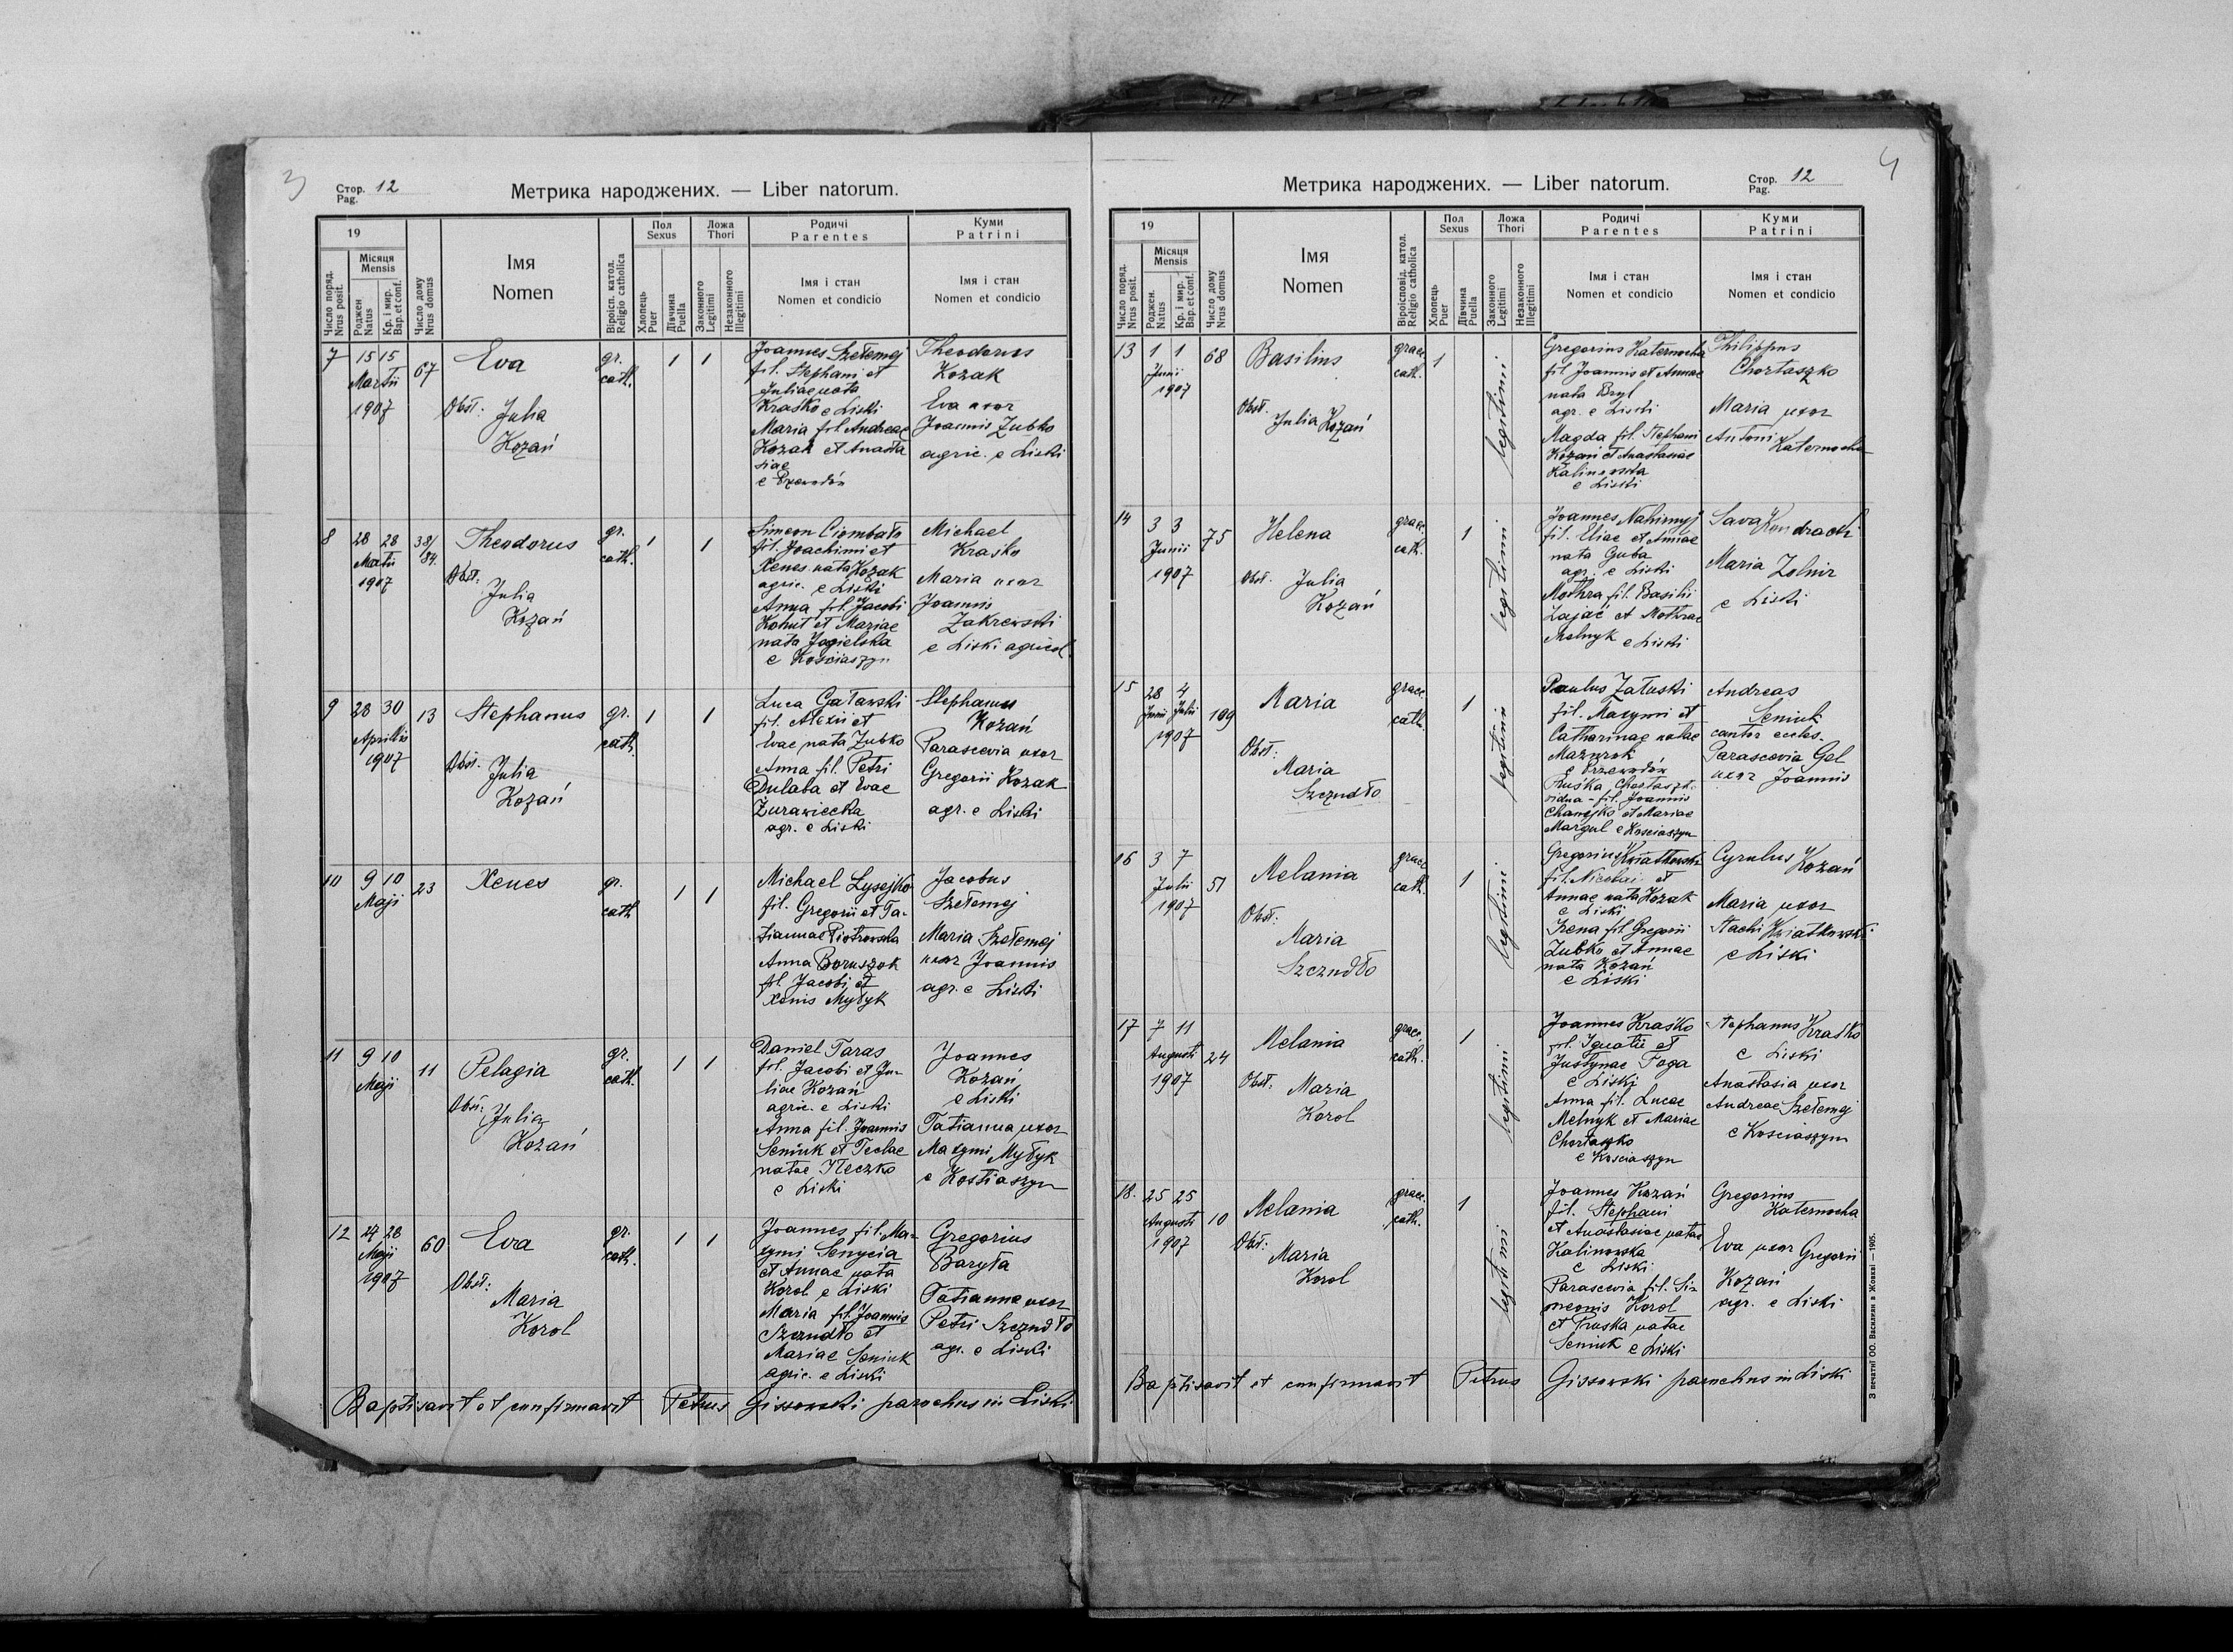 3
Стор. 12
Pag.
Метрика народжених. — Liber natorum.
19
Число поряд.
Nrus posit.
Місяця
Mensis
Роджен
Natus
Кр. і мир.
Bap. et conf.
Число дому
Nrus domus
Імя
Nomen
Віроісп. катол.
Religio catholica
Пол
Sexus
Хлопець
Puer
Дівчина
Puella
Ложа
Thori
Законного
Legitimi
Незаконного
Illegitimi
Родичі
Parentes
Імя і стан
Nomen et condicio
Куми
Patrini
Імя і стан
Nomen et condicio
7
15 15
Martii
1907
67
Eva
Obst: Julia
Kozań
gr.
cath.
1
1
Joannes Szełemej
fil. Stephani et
Juliae nata
Kraśko e Liski
Maria fil. Andreae
Kozak et Anasta
siae
e Przewodów
Theodorus
Kozak
Eva uxor
Joannis Zubko
agric. e Liski
8
28 28
Martii
1907
38/
84.
Theodorus
Obst.
Julia
Kozań
gr.
cath.
1
1
Simeon Ciombało
fil. Joachimi et
Xenes nata Kozak
agric. e Liski
Anna fil. Jacobi
Kohut et Mariae
nata Jagielska
e Kościaszyn
Michael
Kraśko
Maria uxor
Joannis
Zakrewski
e Liski agricol.
9
28 30
Aprillis
1907
13
Stephanus
Obst. Julia
Kozań
gr.
cath.
1
1
Luca Gaławski
fil. Alexii et
Evae nata Zubko
Anna fil. Petri
Dulaba et Evae
Żurawiecka
agr. e Liski
Stephanus
Kozań
Parascevia uxor
Gregorii Kozak
agr. e Liski
10
9 10
Maji
23
Xenes
gr.
cath
1
1
Michael Łysejko
fil. Gregorii et Ta-
tiannae Piotrowska
Anna Boruszok
fil. Jacobi et
Xenis Mybyk
Jacobus
Szełemej
Maria Szełemej
uxor Joannis
agr. e Liski
11
9 10
Maji
11
Pelagia
Obst: Julia
Kozań
gr.
cath.
1
1
Daniel Taras
fil. Jacobi et Ju-
liae Kozań
agric. e Liski
Anna fil. Joannis
Seniuk et Teclae
natae Kleczko
e Liski
Joannes
Kozań
e Liski
Tatianna uxor
Maxymi Mybyk
e Kostiaszyn
12
27 28
Maji
1907
60
Eva
Obst:
Maria
Korol
gr.
cath.
1
1
Joannes fil. Ma-
xymi Senycia
et Annae nata
Korol e Liski
Maria fil. Joannis
Szczudło et
Mariae Seniuk
agric. e Liski
Gregorius
Baryła
Tatianna uxor
Petri Szczudło
agr. e Liski
Baptisavit et confirmavit Petrus Gissowski parochus in Liski
4
Метрика народжених. — Liber natorum.
Стор. 12
Pag.
19
Число поряд.
Nrus posit.
Місяця
Mensis
Роджен.
Natus
Кр. і мир.
Bap. et conf.
Число дому
Nrus domus
Імя
Nomen
Віроісповід. катол.
Religio catholica
Пол
Sexus
Хлопець
Puer
Дівчина
Puella
Ложа
Thori
Законного
Legitimi
Незаконного
Illegitimi
Родичі
Parentes
Імя і стан
Nomen et condicio
Куми
Patrini
Імя і стан
Nomen et condicio
13
1 1
Junii
1907
68
Basilius
Obst.
Julia Kozań
graec.
cath.
1
legitimi
Gregorius Katernocha
fil Joannis et Annae
nata Bryl
agr. e Liski
Magda fil. Stephani
Kozań et Anastasiae
Kalinowska
e Liski
Philippus
Chortaszko
Maria uxor
Antoni Katernocha
14
3 3
Junii
1907
75
Helena
Obst. Julia
Kozań
graec
cath.
1
legitimi
Joannes Nahirnyj
fil. Eliae et Anniae
nata Guba
agr. e Liski
Mothra fil. Basilii
Zająć et Mothrae
Melnyk e Liski
Sava Kondracki
Maria Zolnir
e Liski
15
28 4
Junii Julii
1907
109
Maria
Obst:
Maria
Szczudło
graec.
cath.
1
legitimi
Paulus Załuski
fil. Maxymi et
Catharinae natae
Mazurok
e Przewodów
Pruśka Chortaszk.
vidua - fil. Joannis
et Mariae
Margul e Kosciaszyn
Andreas
Seniuk
cantor eccles.
Parascevia Gel
uxor Joannis
16
3 7
Julii
1907
51
Melania
Obst:
Maria
Szczudło
graec
cath.
1
legitimi
Gregorius Kwiatkowski
fil. Nicolai et
Annae nata Kozak
e Liski
Irena fil Gregorii
Zubko et Annae
nata Kozań
e Liski
Cyrulus Kozań
Maria uxor
Stachi Kwiatkowski
e Liski
17
7 11
Augusti
1907
24
Melania
Obst. Maria
Korol
graec.
cath.
1
legitimi
Joannes Kraśko
fil. Ignatii et
Justynae Foga
e Liski
Anna fil. Lucae
Melnyk et Mariae
Chortaszko
e Kosciaszyn
Stephanus Kraśko
e Liski
Anastasia uxor
Andreae Szełemej
e Kosciaszyn
18.
25 25
Augusti
1907
10
Melania
Obst:
Maria
Korol
graec.
cath.
1
legitimi
Joannes Kozań
fil. Stephani
et Anastasiae natae
Kalinowska
e Liski
Parascevia fil. Si-
meonis Korol
et Pruska natae
Seniuk e Liski
Gregorius
Katernocha
Eva uxor Gregorii
Kozań
agr. e Liski
Baptisavit et confirmavit Petrus Gissowski parochus in Liski
З печатні ОО. Василиян в Жовкві — 1905.